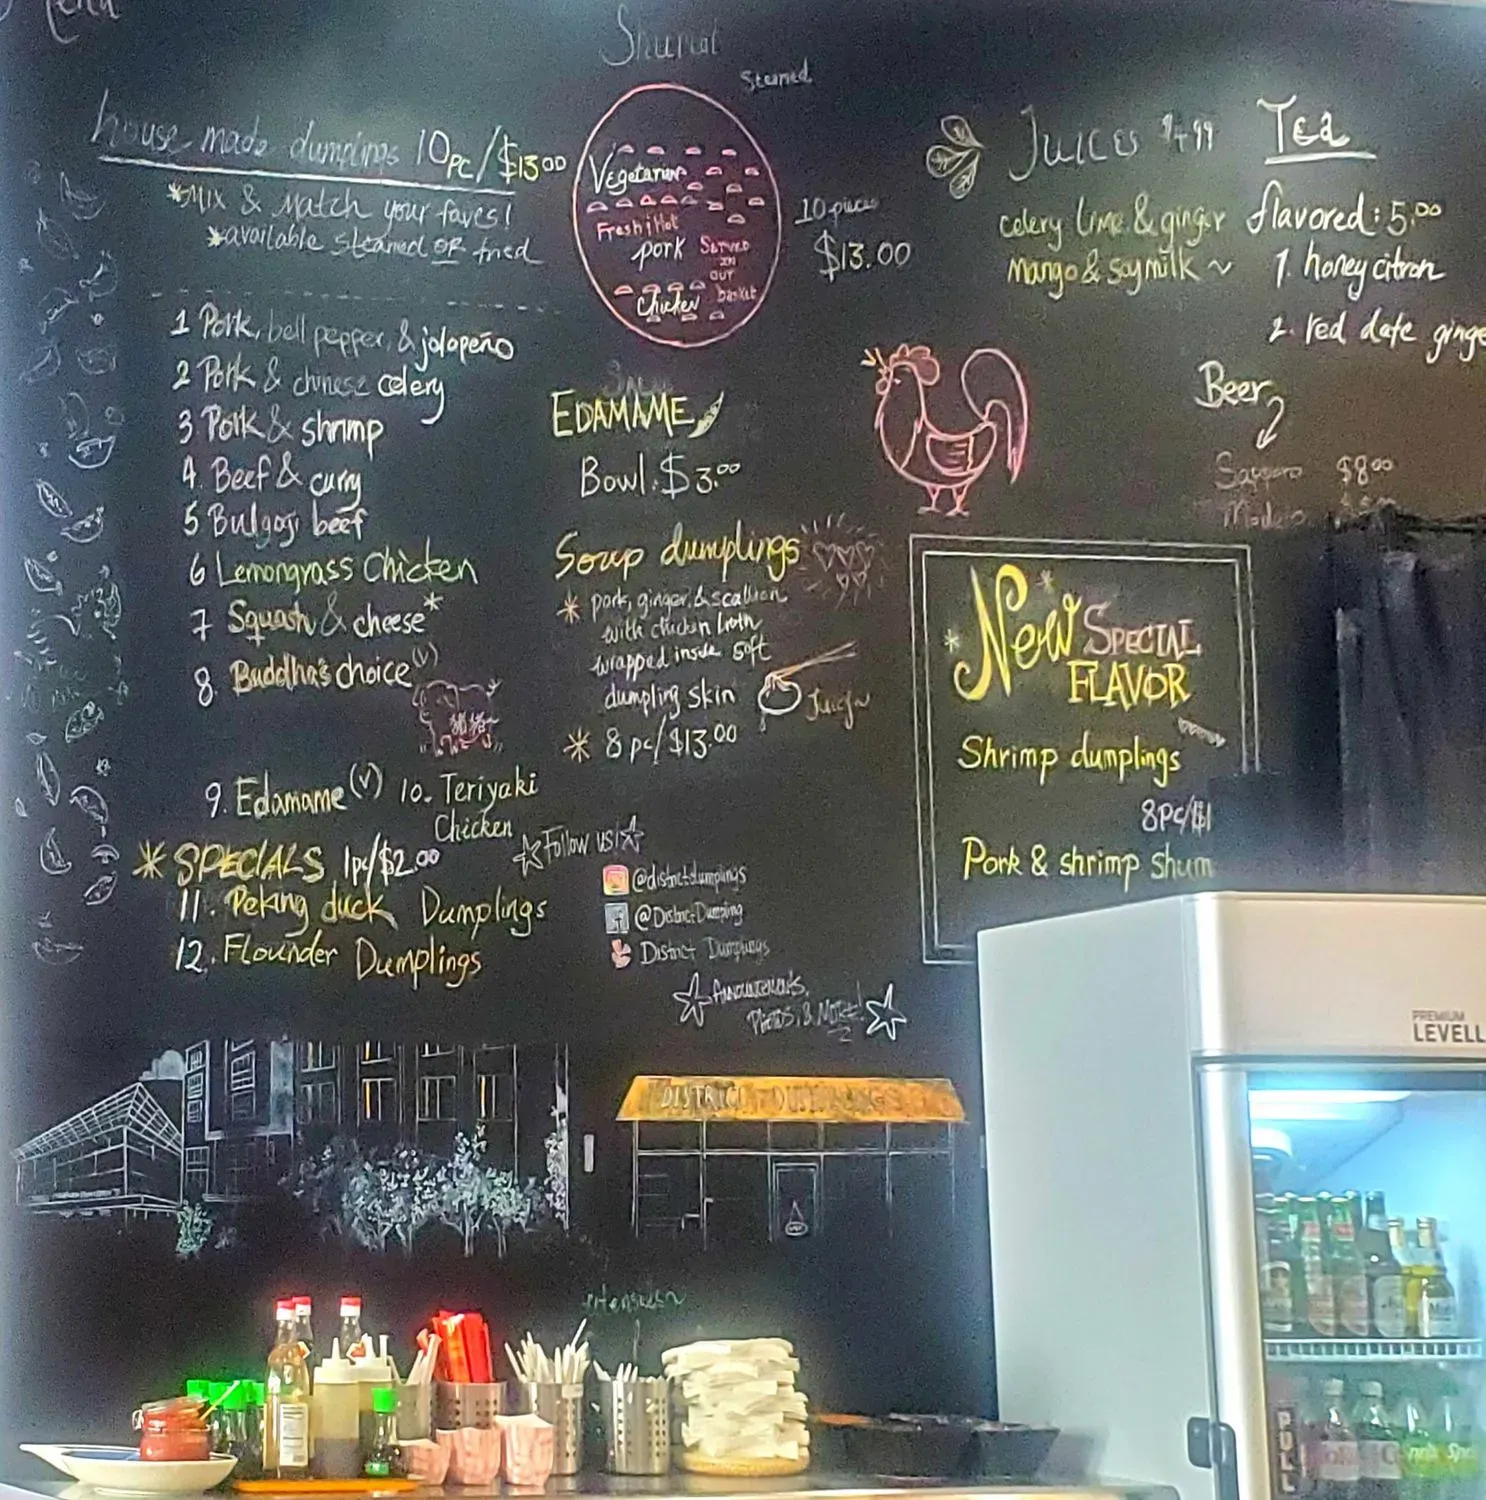 house made dumplings 10pc/$13.00
*Mix & Match your faves!
*available steamed OR fried
1 Pork, bell pepper, & jalapeño
2 Pork & chinese celery
3. Pork & shrimp
4. Beef & curry
5 Bulgogi beef
6 Lemongrass Chicken
7 Squash & cheese*
8. Buddha's choice (v)
9. Edamame (v) 10. Teriyaki
Chicken
* SPECIALS 1pc/$2.00
11. Peking duck Dumplings
12. Flounder Dumplings
Steamed
Vegetarian
Fresh & Hot
pork
SERVED
IN
OUT
basket
Chicken
10 pieces
$13.00
EDAMAME
Bowl: $3.00
Soup dumplings
* pork, ginger, & scallion
with chicken broth
wrapped inside soft
dumpling skin
Juicy~
* 8 pc/$13.00
Follow us!
@districtdumplings
f @DistrictDumpling
District Dumplings
Announcements,
Photos, & More!
DISTRICT DUMPLINGS
Juices $4.99
celery lime & ginger
Mango & soymilk ~
Tea
flavored: 5.00
1. honey citron
2. red date ginge
Beer
Sapporo $8.00
Modelo
New SPECIAL
FLAVOR
Shrimp dumplings
8pc/$1
Pork & shrimp shum
PREMIUM
LEVELL
PULL